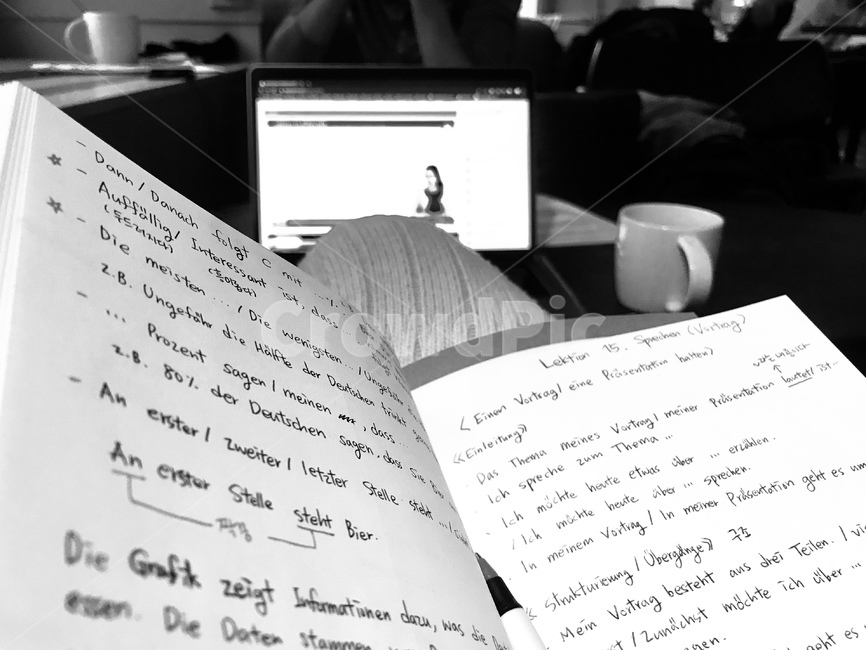 - Dann / Danach folgt C mit ...%
☆ - Auffällig / Interessant ist, dass
(두드러지다) (흥미롭다)
☆ - Die meisten ... / Die wenigsten ... / Ungefähr
z.B. Ungefähr die Hälfte der Deutschen trinkt
- ... Prozent sagen / meinen, dass...
z.B. 80% der Deutschen sagen, dass sie
- An erster / zweiter / letzter Stelle steht ...
An erster Stelle steht Bier.
Die Grafik zeigt Informationen dazu, was die
essen. Die Daten stammen
Lektion 15. Sprechen (Vortrag)
< Einen Vortrag / eine Präsentation halten >
《Einleitung》
Das Thema meines Vortrag / meiner Präsentation lautet / ist...
Ich spreche zum Thema ...
Ich möchte heute etwas über ... erzählen.
/ Ich möchte heute über ... sprechen.
In meinem Vortrag / In meiner Präsentation geht es um
《Strukturierung / Übergänge》 구조
Mein Vortrag besteht aus drei Teilen. /
/ Zunächst möchte ich über ...
geht es
CrowdPic